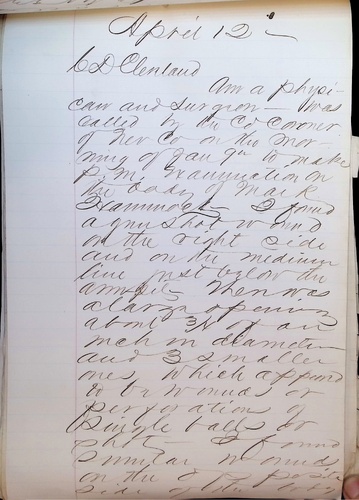 April 12
C D Clenland
Am a physi-
cian and surgeon — was
called by the Co Coroner
of Nev Co on the mor-
ning of Jan 9th to make
P.M. Examination on
the body of Mark
Hammock I found
a gun shot wound
on the right side
and on the medium
line just below the
armpit There was
a large opening
about 3/4 of an
inch in diameter
and 3 smaller
ones which appeard
to be wounds or
perforations of
single balls or
shot — I found
similar wounds
on the
side of the